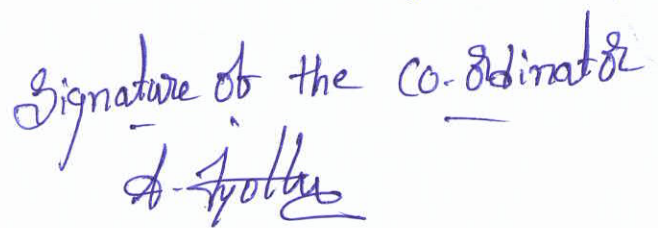 Signature of the co-ordinator
A. Jyothy